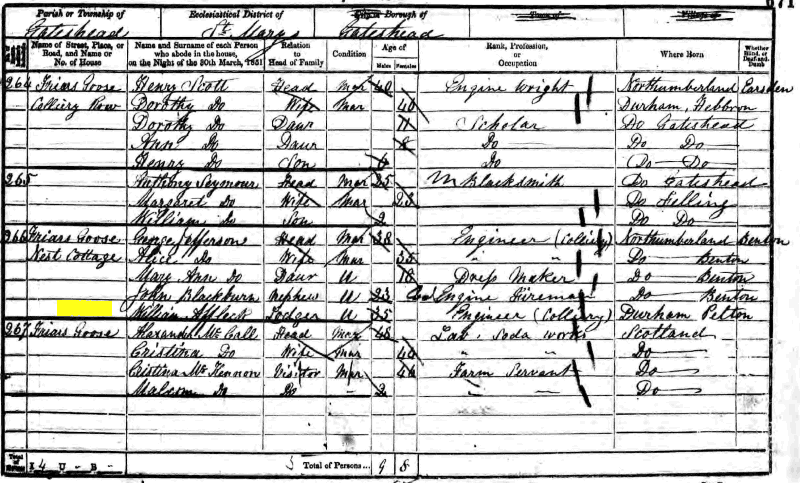 671
Parish or Township of Ecclesiastical District of City or Borough of Town of Village of
Gateshead St Marys Gateshead
Name of Street, Place, or Road, and Name or No. of House Name and Surname of each Person who abode in the house, on the Night of the 30th March, 1851 Relation to Head of Family Condition Age of Males Females Rank, Profession, or Occupation Where Born Whether Blind, or Deaf-and-Dumb
264 Friars Goose Henry Scott Head Mar 40 Engine Wright Northumberland Earsden
Colliery Row Dorothy Do Wife Mar 40 Durham, Hebbron
Dorothy Do Daur 11 Scholar Do Gateshead
Ann Do Daur 8 Do Do Do
Henry Do Son 6 Do Do Do
265 Anthony Seymour Head Mar 25 M Blacksmith Do Gateshead
Margaret Do Wife Mar 23 Do Felling
William Do Son 2 Do Do
266 Friars Goose George Jefferson Head Mar 38 Engineer (Colliery) Northumberland Benton
West Cottage Alice Do Wife Mar 35 " " Do Benton
Mary Ann Do Daur U 18 Dress Maker Do Benton
John Blackburn Nephew U 23 Engine Fireman Do Benton
William Affleck Lodger U 35 Engineer (Colliery) Durham Pelton
267 Friars Goose Alexander McCall Head Mar 48 Lab. Soda works Scotland
Cristina Do Wife Mar 44 " " Do
Cristina McKennon Visitor Mar 46 Farm Servant Do
Malcom Do Do - 2 Do
Total of Houses 4 U - B - Total of Persons... 9 8